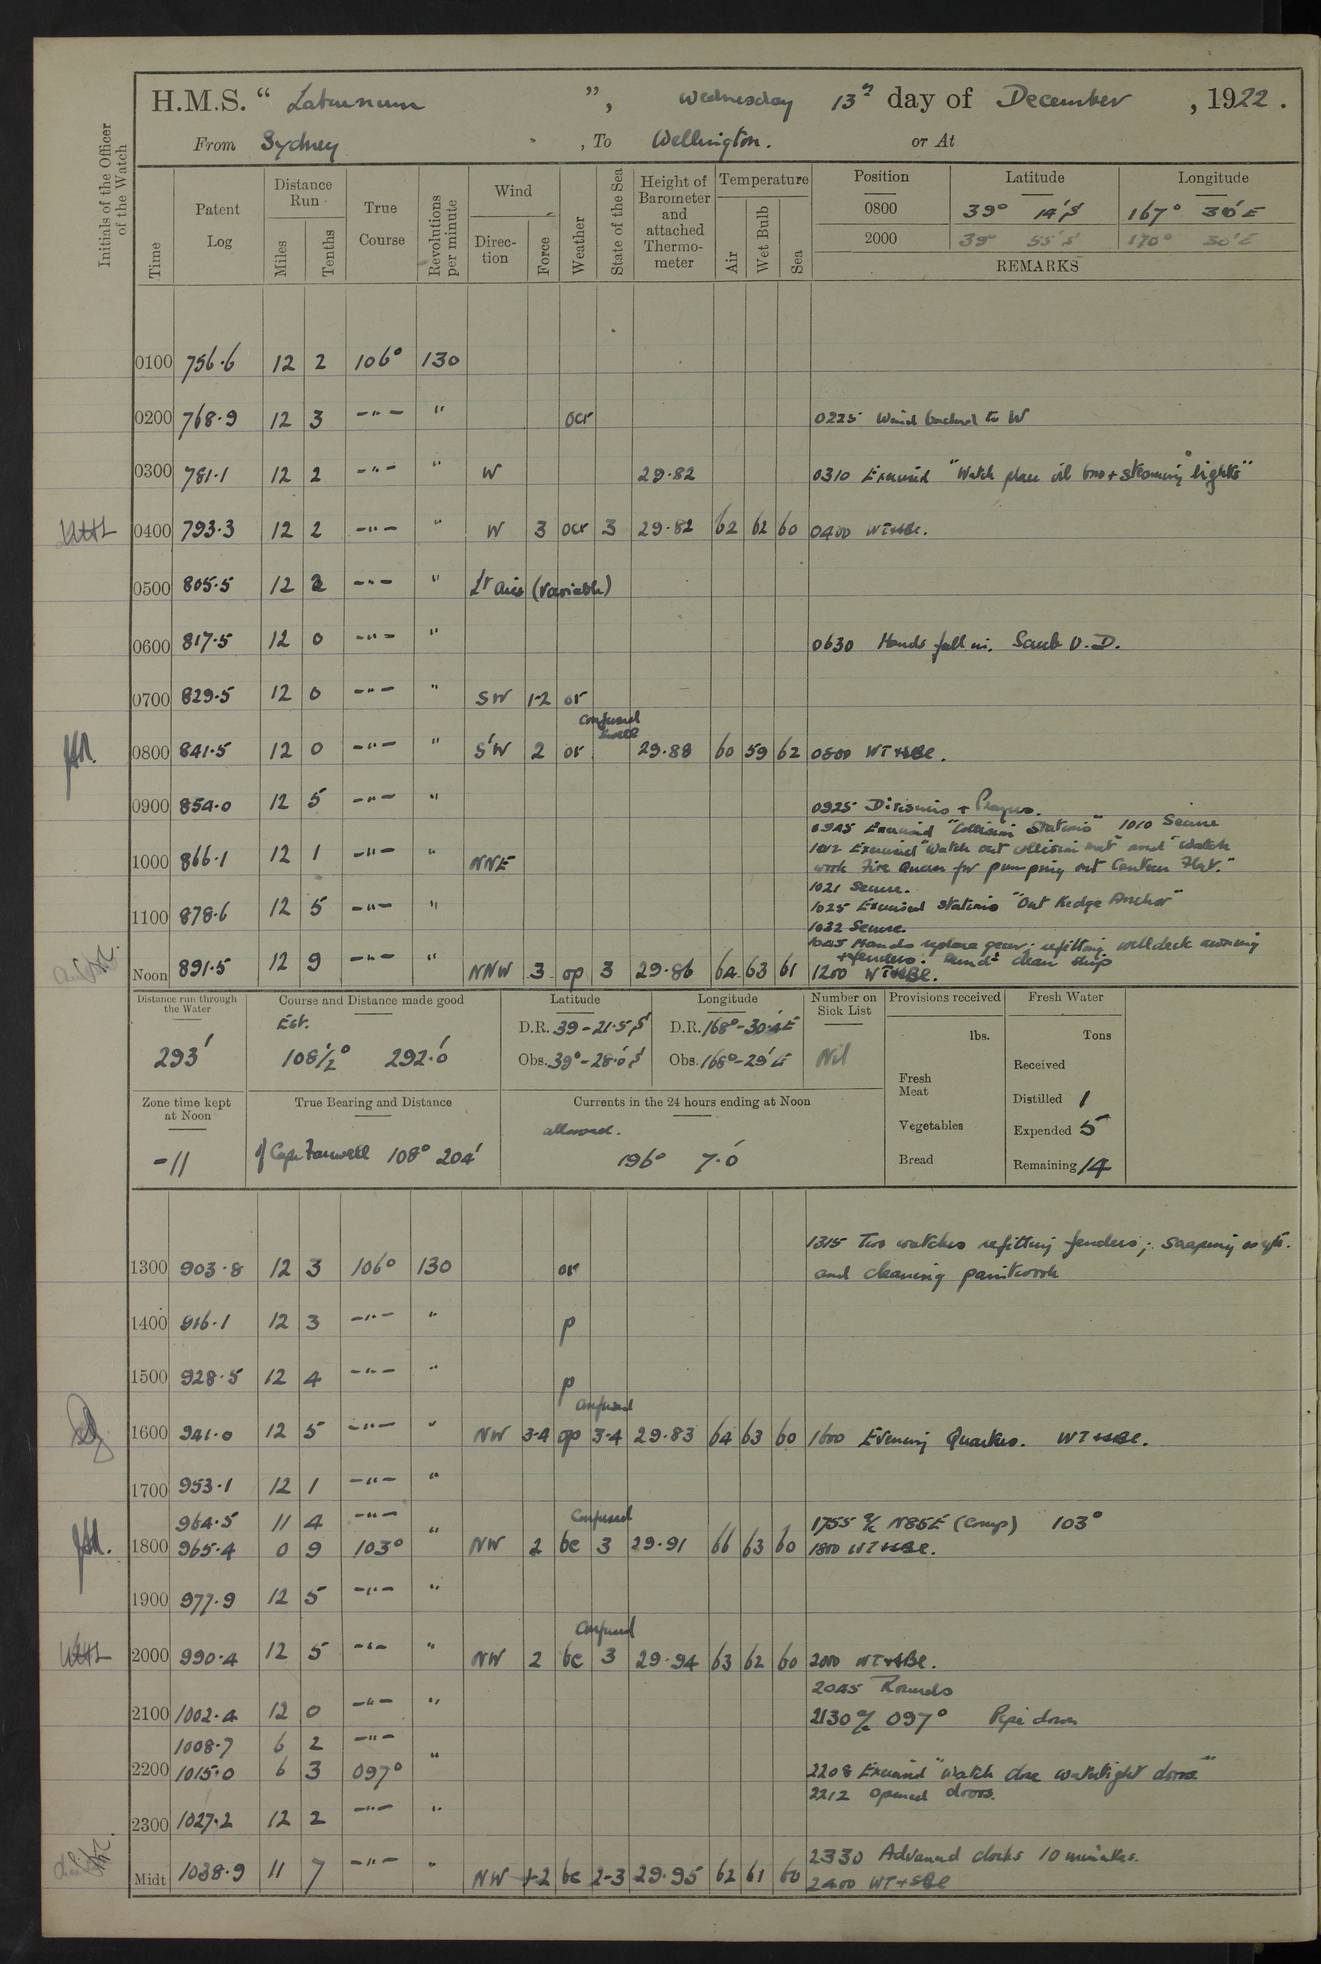 H.M.S. “ Laburnum ”, Wednesday 13th day of December , 1922 .
From Sydney , To Wellington. or At
Initials of the Officer of the Watch
Time Patent Log Distance Run Miles Tenths True Course Revolutions per minute Wind Direc-tion Force Weather State of the Sea Height of Barometer and attached Thermo-meter Temperature Air Wet Bulb Sea Position Latitude Longitude
0800 39° 14' S 167° 30' E
2000 39° 55' S 170° 30' E
REMARKS
0100 756.6 12 2 106° 130
0200 768.9 12 3 —"— " ocr 0225 Wind backed to W
0300 781.1 12 2 —"— " W 29.82 0310 Exercised "Watch place oil bow + steaming lights"
0400 793.3 12 2 —"— " W 3 ocr 3 29.82 62 62 60 0400 WT+SBl.
0500 805.5 12 2 —"— " Lt airs (variable)
0600 817.5 12 0 —"— " 0630 Hands fall in. Scrub U.D.
0700 829.5 12 0 —"— " SW 1-2 or
confused swell
0800 841.5 12 0 —"— " S'W 2 or 29.88 60 59 62 0800 WT+SBl.
0900 854.0 12 5 —"— " 0925 Divisions + Prayers.
0945 Exercised "Collision Stations" 1010 Secure
1000 866.1 12 1 —"— " NNE 1012 Exercised "Watch out collision mat" and "Watch
work Fire Queen for pumping out Canteen Flat."
1021 Secure.
1100 878.6 12 5 —"— " 1025 Exercised stations "Out Kedge Anchor"
1032 Secure.
1045 Hands replace gear; refitting welldeck awning
+ fenders. Hands clean ship
Noon 891.5 12 9 —"— " NNW 3 op 3 29.86 64 63 61 1200 WT+SBl.
Distance run through the Water 293'
Course and Distance made good Est. 108½° 292.0'
Latitude D.R. 39-21.5 S Obs. 39°-28.0' S
Longitude D.R. 168°-30.4 E Obs. 168°-29' E
Number on Sick List Nil
Provisions received lbs. Fresh Meat Vegetables Bread
Fresh Water Tons Received Distilled 1 Expended 5 Remaining 14
Zone time kept at Noon -11
True Bearing and Distance of Cape Farewell 108° 204'
Currents in the 24 hours ending at Noon allowed. 196° 7.0'
1315 Two watches refitting fenders; scraping
1300 903.8 12 3 106° 130 or and cleaning paintwork
1400 916.1 12 3 —"— " p
1500 928.5 12 4 —"— " p
confused
1600 941.0 12 5 —"— " NW 3-4 op 3-4 29.83 64 63 60 1600 Evening Quarters. WT+SBl.
1700 953.1 12 1 —"— "
964.5 11 4 —"— Confused 1755 a/c N85E (Comp) 103°
1800 965.4 0 9 103° " NW 2 bc 3 29.91 66 63 60 1800 WT+SBl.
1900 977.9 12 5 —"— "
Confused
2000 990.4 12 5 —"— " NW 2 bc 3 29.94 63 62 60 2000 WT+SBl.
2045 Rounds
2100 1002.4 12 0 —"— " 2130 a/c 097° Pipe down
1008.7 6 2 —"—
2200 1015.0 6 3 097° " 2208 Exercised "Watch close watertight doors"
2212 opened doors.
2300 1027.2 12 2 —"— "
2330 Advanced clocks 10 minutes.
Midt 1038.9 11 7 —"— " NW 1-2 bc 2-3 29.95 62 61 60 2400 WT+SBl